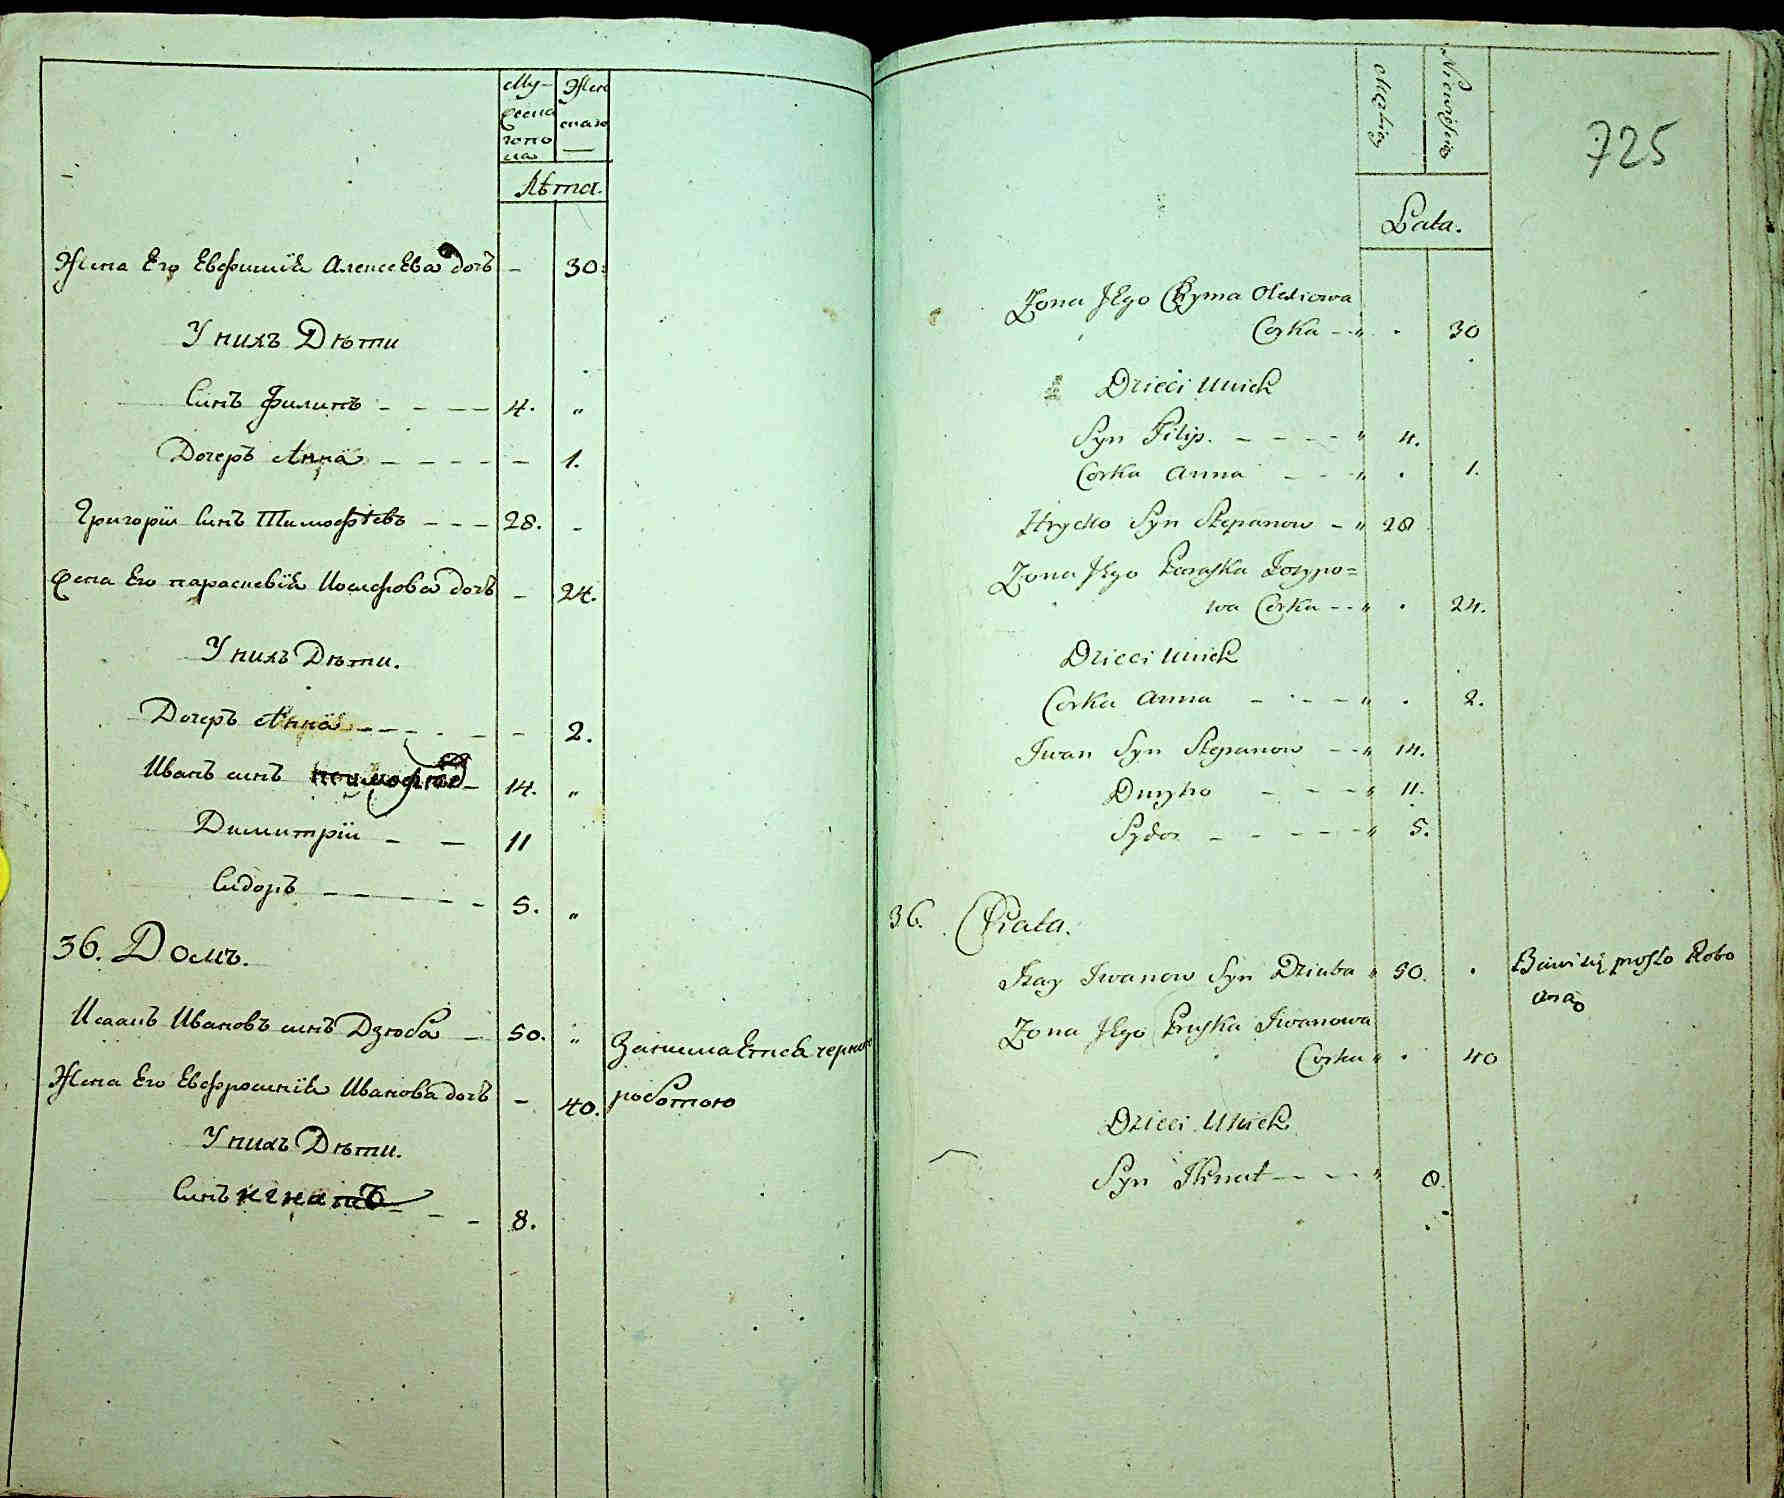 Му-
ска
гопо
ла
Жен
скаго
Лѣта.
Жена Его Евфимія Алексѣева дочь - 30.
У нихъ Дѣти
Синъ Филипъ - - - - 4. "
Дочеръ Анна - - - - - 1.
Григорій Синъ Тимофѣевъ - - - 28. -
Жена Его параскевія Іосифова дочь - 24.
У нихъ Дѣти.
Дочеръ Анна - - - - - - 2.
Иванъ синъ - 14. "
Димитрій - - 11
Сидоръ - - - - - - 5. "
36. Домъ.
Исаакъ Ивановъ синъ Дзюба - 50. " Занимается черною
Жена Его Евфросинія Иванова дочь - 40. работою
У нихъ Дѣти.
Синъ игнатъ - - - 8.
725
Męskiey
Niewieściey
Lata.
Zona Jego Chyma Olexiowa
Corka - - " . 30
Dzieci Unich
Syn Filip. - - - - " 4.
Corka Anna - - - " . 1.
Hrycko Syn Stepanow - " 28
Zona Jego Paraska Josypo=
wa Corka - - " . 24.
Dzieci Unich
Corka Anna - - - - " . 2.
Jwan Syn Stepanow - - " 14.
Dmytro - - - " 11.
Sydor - - - - - " 5.
36. Chata.
Jzay Jwanow Syn Dziuba " 50. . Bawi się prosto Robo
Zona Jego Pruska Jwanowa
Corka " . 40
Dzieci Unich
Syn Jhnat - - - - " 8.